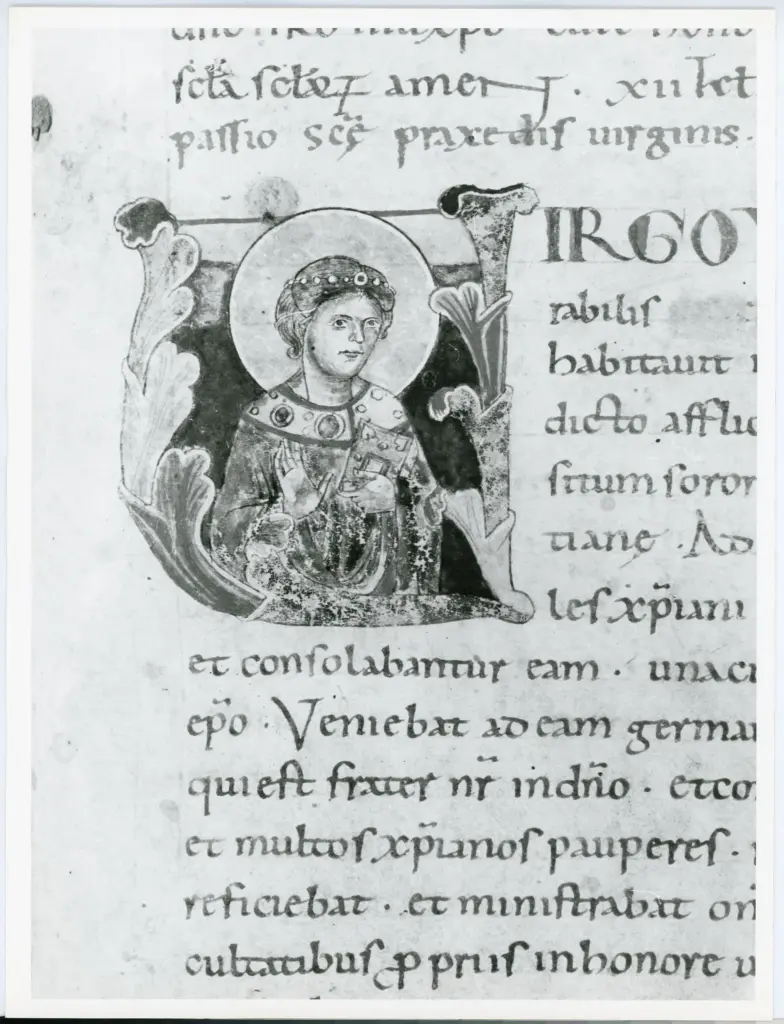 scła scłoꝝ amen. xii kt
passio scę praxedis uirginis.
VIRGO
rabilis
habitauit
dicto afflic
situm soror
tiane. Ad
les xp̄iani
et consolabantur eam. una cu
ep̄o. Veniebat ad eam germa
qui est frater nr̄ in dn̄o. et co
et multos xp̄ianos pauperes.
reficiebat. et ministrabat om
cultatibus ꝓpriis in honore u